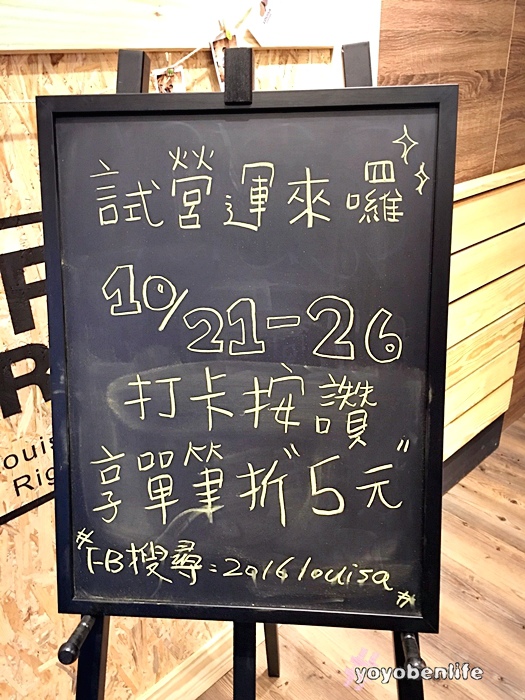 試營運來囉
10/21-26
打卡按讚
享單筆折"5元"
"FB搜尋:2016louisa"
F
R
ouis
Rig
yoyobenlife